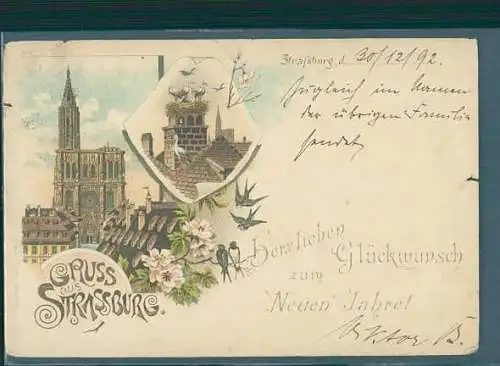 Strassburg, d. 30/12/92.
Zugleich im Namen
der übrigen Familie
sendet
Herzlichen Glückwunsch
zum
Neuen Jahre!
Viktor B.
GRUSS
aus
STRASSBURG.